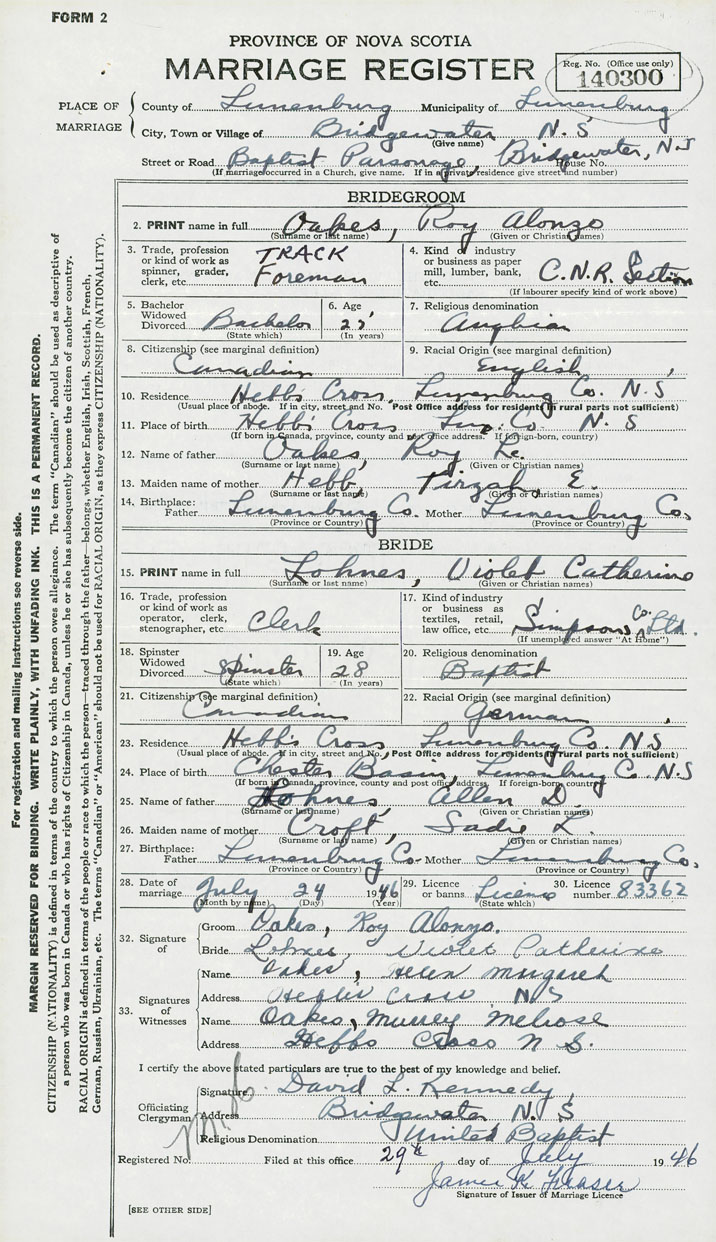 FORM 2
PROVINCE OF NOVA SCOTIA
MARRIAGE REGISTER
Reg. No. (Office use only)
140300
PLACE OF MARRIAGE
County of Lunenburg Municipality of Lunenburg
City, Town or Village of Bridgewater N.S
(Give name)
Street or Road Baptist Parsonage, Bridgewater, N.S
House No.
(If marriage occurred in a Church, give name. If in a private residence give street and number)
BRIDEGROOM
2. PRINT name in full Oakes, Roy Alonzo
(Surname or last name) (Given or Christian names)
3. Trade, profession or kind of work as spinner, grader, clerk, etc. TRACK Foreman
4. Kind of industry or business as paper mill, lumber, bank, etc. C.N.R. Section
(If labourer specify kind of work above)
5. Bachelor Widowed Divorced Bachelor
(State which)
6. Age
(In years)
7. Religious denomination Anglian
8. Citizenship (see marginal definition) Canadian
9. Racial Origin (see marginal definition) English
10. Residence Hebb's Cross, Lunenburg Co. N.S
(Usual place of abode. If in city, street and No. Post Office address for residents in rural parts not sufficient)
11. Place of birth Hebb's Cross Lun. Co. N.S
(If born in Canada, province, county and post office address. If foreign-born, country)
12. Name of father Oakes, Roy Le.
(Surname or last name) (Given or Christian names)
13. Maiden name of mother Hebb, Tirzah E.
(Surname or last name) (Given or Christian names)
14. Birthplace: Father Lunenburg Co. Mother Lunenburg Co.
(Province or Country) (Province or Country)
BRIDE
15. PRINT name in full Lohnes, Violet Catherine
(Surname or last name) (Given or Christian names)
16. Trade, profession or kind of work as operator, clerk, stenographer, etc. Clerk
17. Kind of industry or business as textiles, retail, law office, etc. Simpsons Co. Ltd.
(If unemployed answer "At Home")
18. Spinster Widowed Divorced Spinster
(State which)
19. Age 28
(In years)
20. Religious denomination Baptist
21. Citizenship (see marginal definition) Canadian
22. Racial Origin (see marginal definition) German
23. Residence Hebb's Cross Lunenburg Co. N.S
(Usual place of abode. If in city, street and No. Post Office address for residents in rural parts not sufficient)
24. Place of birth Chester Basin, Lunenburg Co. N.S
(If born in Canada, province, county and post office address. If foreign-born, country)
25. Name of father Lohnes, Allen D.
(Surname or last name) (Given or Christian names)
26. Maiden name of mother Croft, Sadie L.
(Surname or last name) (Given or Christian names)
27. Birthplace: Father Lunenburg Co. Mother Lunenburg Co.
(Province or Country) (Province or Country)
28. Date of marriage July 24 1946
(Month by name) (Day) (Year)
29. Licence or banns Licence
(State which)
30. Licence number 83362
32. Signature of
Groom Oakes, Roy Alonzo.
Bride Lohnes, Violet Catherine
33. Signatures of Witnesses
Name Oakes, Helen Margaret
Address Hebbs Cross N.S
Name Oakes, Murrey Melrose
Address Hebbs Cross N S.
I certify the above stated particulars are true to the best of my knowledge and belief.
Officiating Clergyman
Signature David L. Kennedy
Address Bridgewater N.S
Religious Denomination United Baptist
Registered No. Filed at this office 29th day of July 1946
James K Fraser
Signature of Issuer of Marriage Licence
[SEE OTHER SIDE]
For registration and mailing instructions see reverse side.
MARGIN RESERVED FOR BINDING. WRITE PLAINLY, WITH UNFADING INK. THIS IS A PERMANENT RECORD.
CITIZENSHIP (NATIONALITY) is defined in terms of the country to which the person owes allegiance. The term "Canadian" should be used as descriptive of
a person who was born in Canada or who has rights of Citizenship in Canada, unless he or she has subsequently become the citizen of another country.
RACIAL ORIGIN is defined in terms of the people or race to which the person—traced through the father—belongs, whether English, Irish, Scottish, French,
German, Russian, Ukrainian, etc. The terms "Canadian" or "American" should not be used for RACIAL ORIGIN, as they express CITIZENSHIP (NATIONALITY).